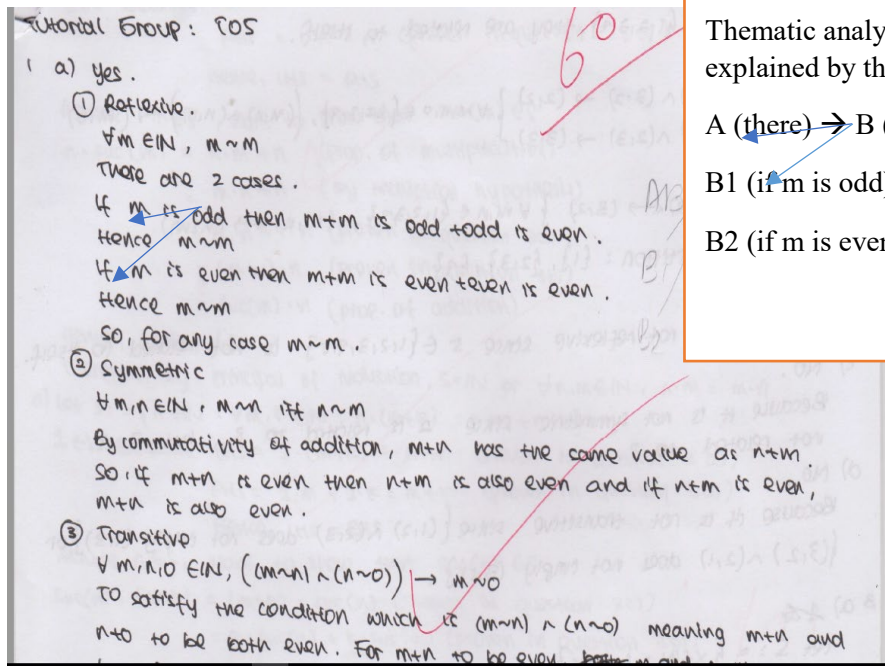 Tutorial Group: T05
60
1 a) Yes.
① Reflexive.
∀m ∈ ℕ, m~m
There are 2 cases.
If m is odd then m+m is odd+odd is even.
Hence m~m
If m is even then m+m is even+even is even.
Hence m~m
So, for any case m~m.
② Symmetric
∀m,n ∈ ℕ, m~n iff n~m
By commutativity of addition, m+n has the same value as n+m.
So if m+n is even then n+m is also even and if n+m is even,
m+n is also even.
③ Transitive
∀m,n,o ∈ ℕ, ((m~n) ∧ (n~o)) → m~o
To satisfy the condition which is (m~n) ∧ (n~o) meaning m+n and
n+o to be both even. For m+n to be even, m and
Thematic analy
explained by th
A (there) → B (
B1 (if m is odd)
B2 (if m is even